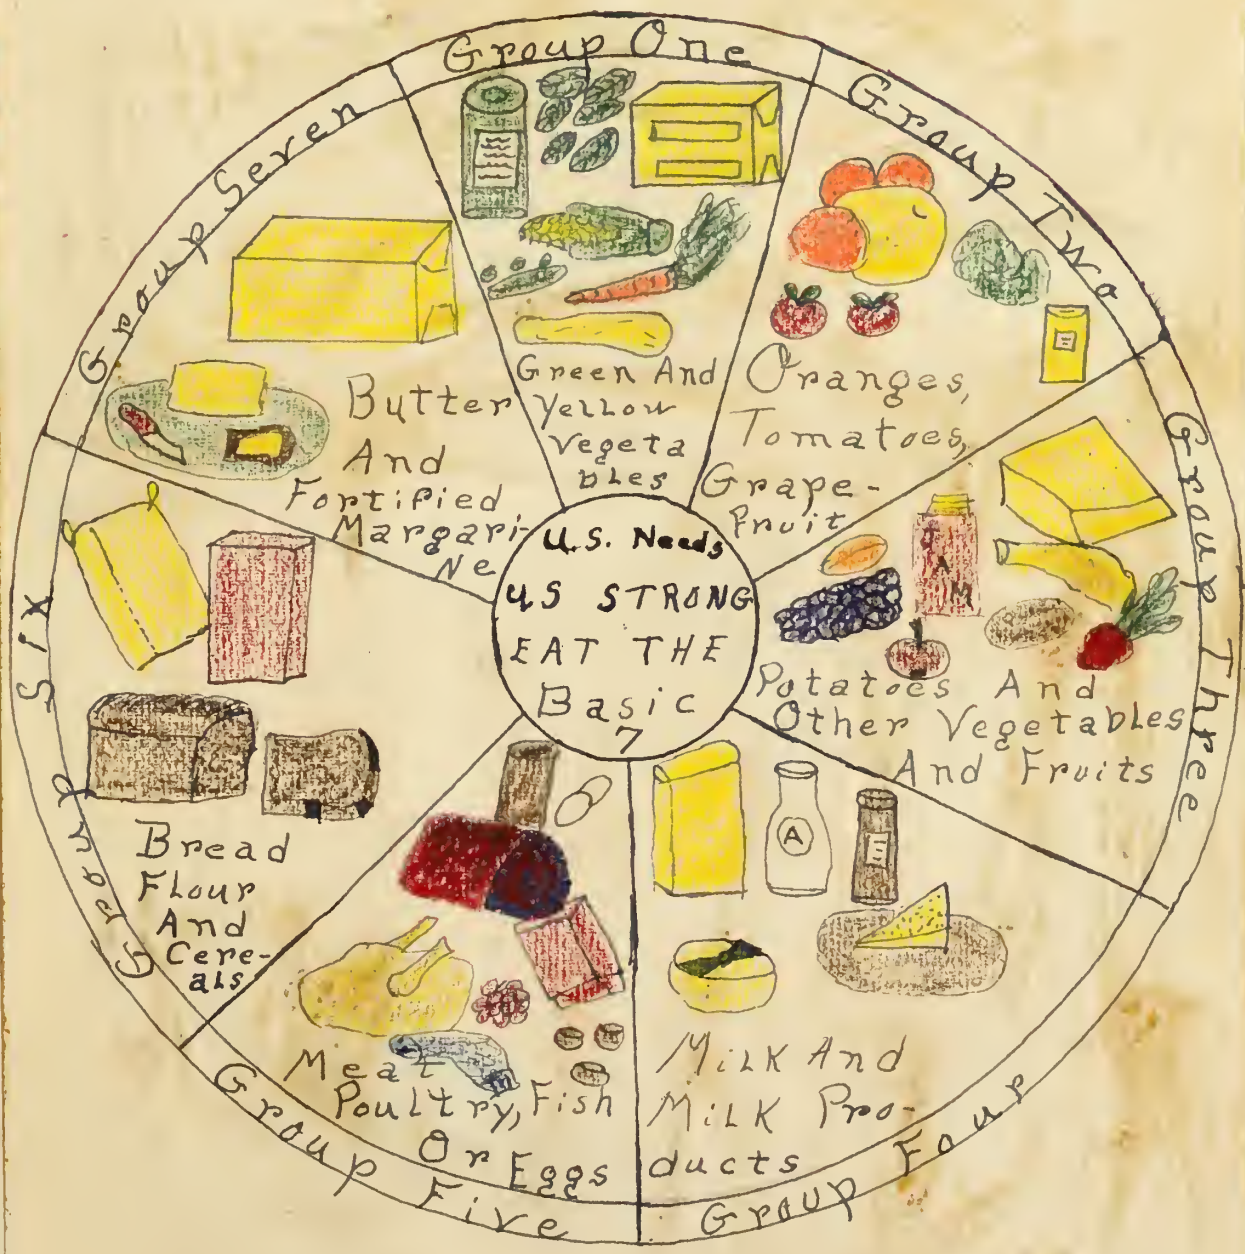 Group One
Green And
Yellow
Vegeta
bles
Group Two
Oranges,
Tomatoes,
Grape-
fruit
Group Three
JAM
Potatoes And
Other Vegetables
And Fruits
Group Four
A
Milk And
Milk Pro-
ducts
Group Five
Meat
Poultry, Fish
Or Eggs
Group Six
Bread
Flour
And
Cere-
als
Group Seven
Butter
And
Fortified
Margari-
Ne
U.S. Needs
US STRONG
EAT THE
Basic
7